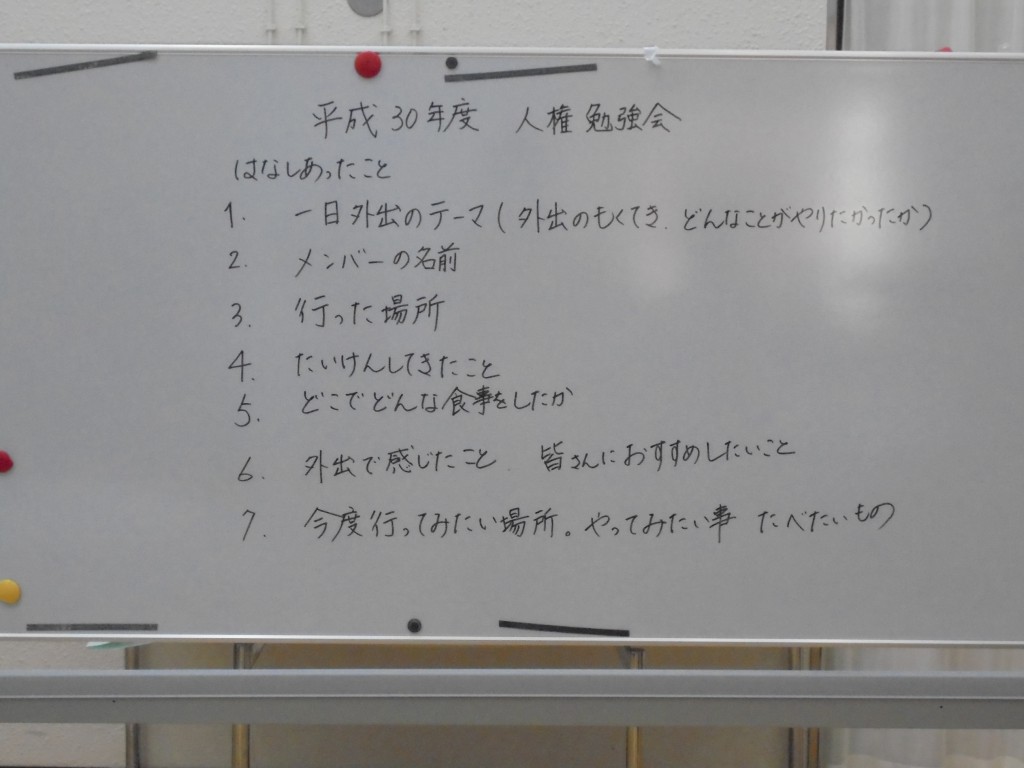 平成30年度　人権勉強会
はなしあったこと
1.　一日外出のテーマ(外出のもくてき、どんなことがやりたかったか)
2.　メンバーの名前
3.　行った場所
4.　たいけんしてきたこと
5.　どこでどんな食事をしたか
6.　外出で感じたこと、皆さんにおすすめしたいこと
7.　今度行ってみたい場所。やってみたい事　たべたいもの